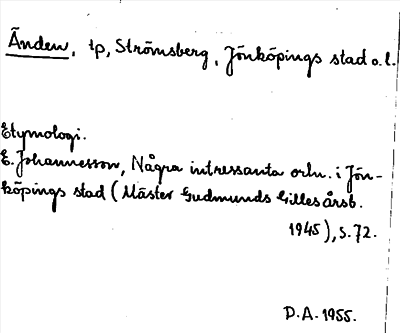 Änden, tp, Strömsberg, Jönköpings stad o. l.
Etymologi.
E. Johannesson, Några intressanta ortn. i Jön-
köpings stad (Mäster Gudmunds Gilles årsb.
1945), s. 72.
D.A. 1955.